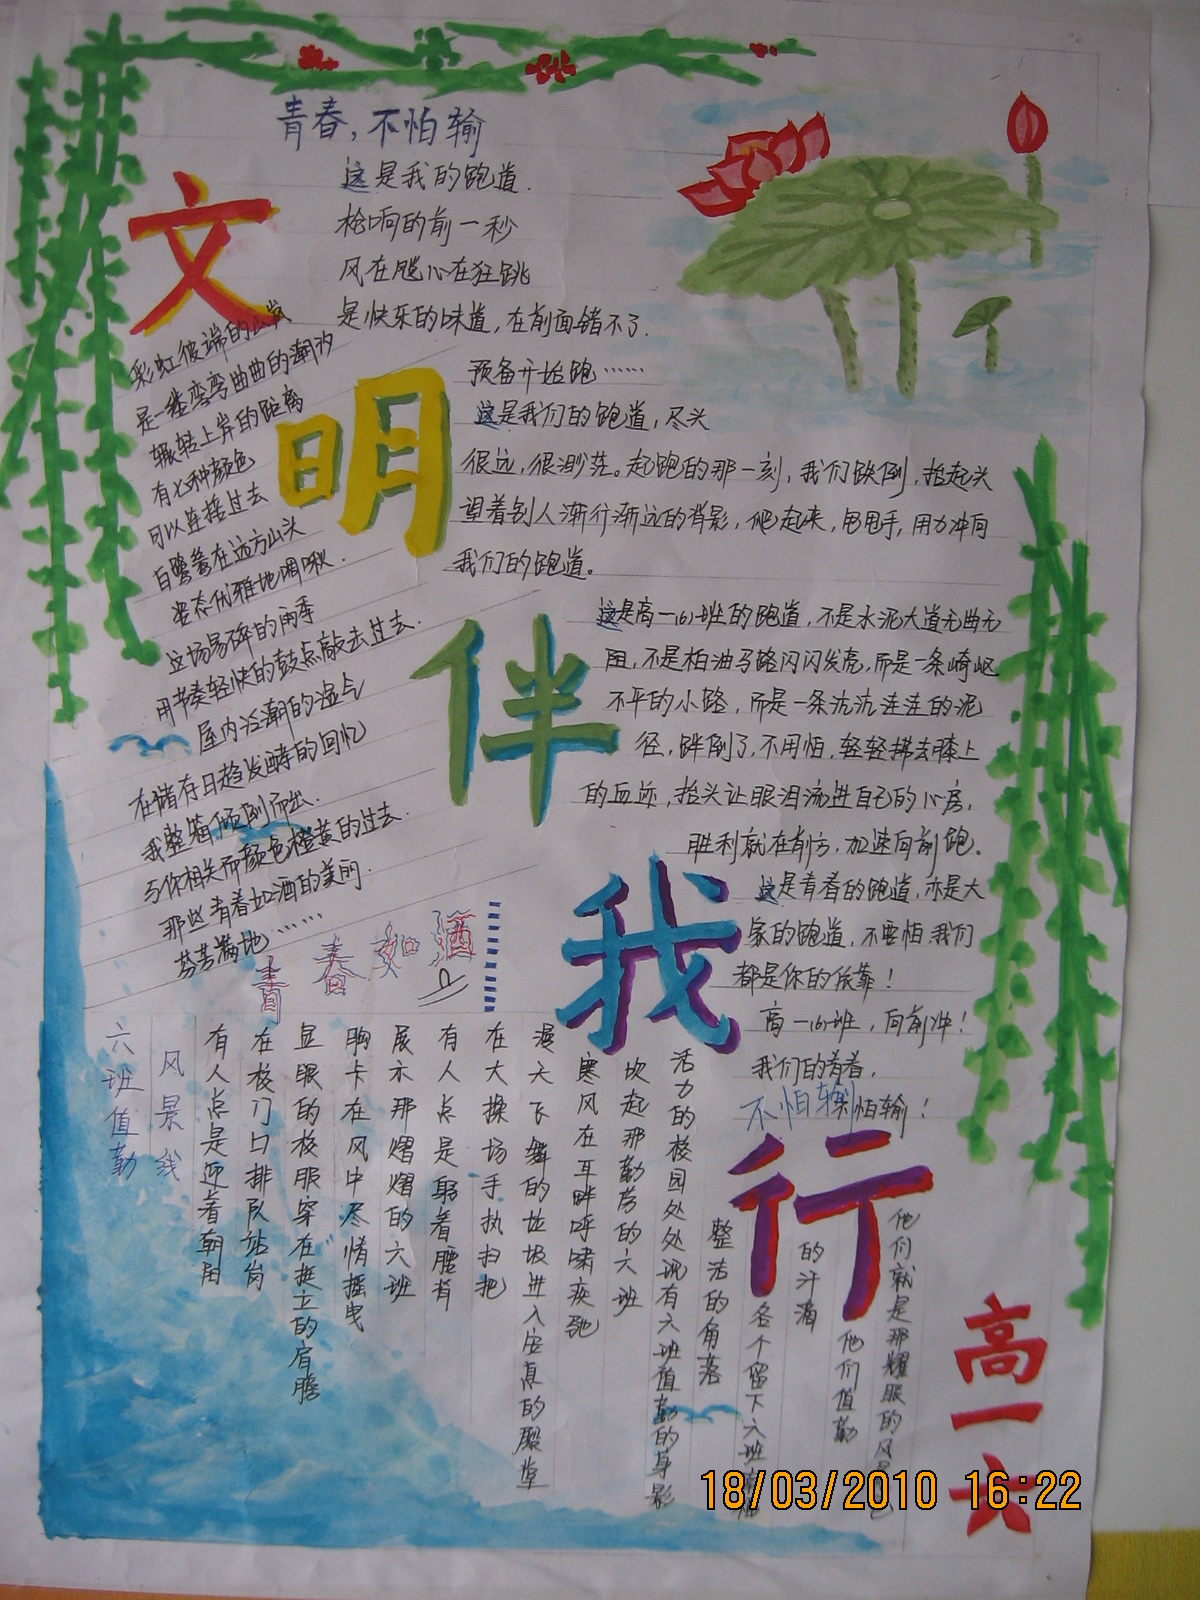 青春，不怕输
这是我的跑道.
枪响的前一秒
风在飚心在狂跳
是快乐的味道，在前面错不了.
预备开始跑……
这是我们的跑道，尽头
很远，很渺茫。起跑的那一刻，我们跌倒，抬起头
望着别人渐行渐远的背影，爬起来，甩甩手，用力冲向
我们的跑道。
这是高一(6)班的跑道，不是水泥大道无曲无
阻，不是柏油马路闪闪发亮，而是一条崎岖
不平的小路，而是一条沆沆洼洼的泥
径，跘倒了，不用怕，轻轻拂去膝上
的血迹，抬头让眼泪流进自己的心房，
胜利就在前方，加速向前跑。
这是青春的跑道，亦是大
家的跑道，不要怕我们
都是你的依靠！
高一(6)班，向前冲！
我们的青春，
不怕输 怕输！
文
明
伴
我
行
高一六
彩虹彼端的
是一缕弯弯曲曲的潮汐
辗转上岸的距离
有七种颜色
可以连接过去
白鹭鸶在远方山头
姿态优雅地啁啾.
这场易碎的雨季
用节奏轻快的鼓点敲去过去.
屋内泛潮的湿气
在储存日趋发酵的回忆
我整箱倾倒而出.
与你相关而颜色橙黄的过去.
那些青春如酒的美丽.
芬芳满地……
青春如酒
六班值勤
风景线
有人点是迎着朝阳
在校门口排队站岗
显眼的校服穿在挺立的肩膀
胸卡在风中尽情摇曳
展示那熠熠的六班
有人点是躬着腰背
在大操场手执扫把
漫天飞舞的垃圾进入应真的殿堂
寒风在耳畔呼啸疾驰
吹起那勤劳的六班
活力的校园处处现有六班值勤的身影
整洁的角落
各个留下六班
的汗滴
他们值勤
他们就是那耀眼的风
18/03/2010 16:22